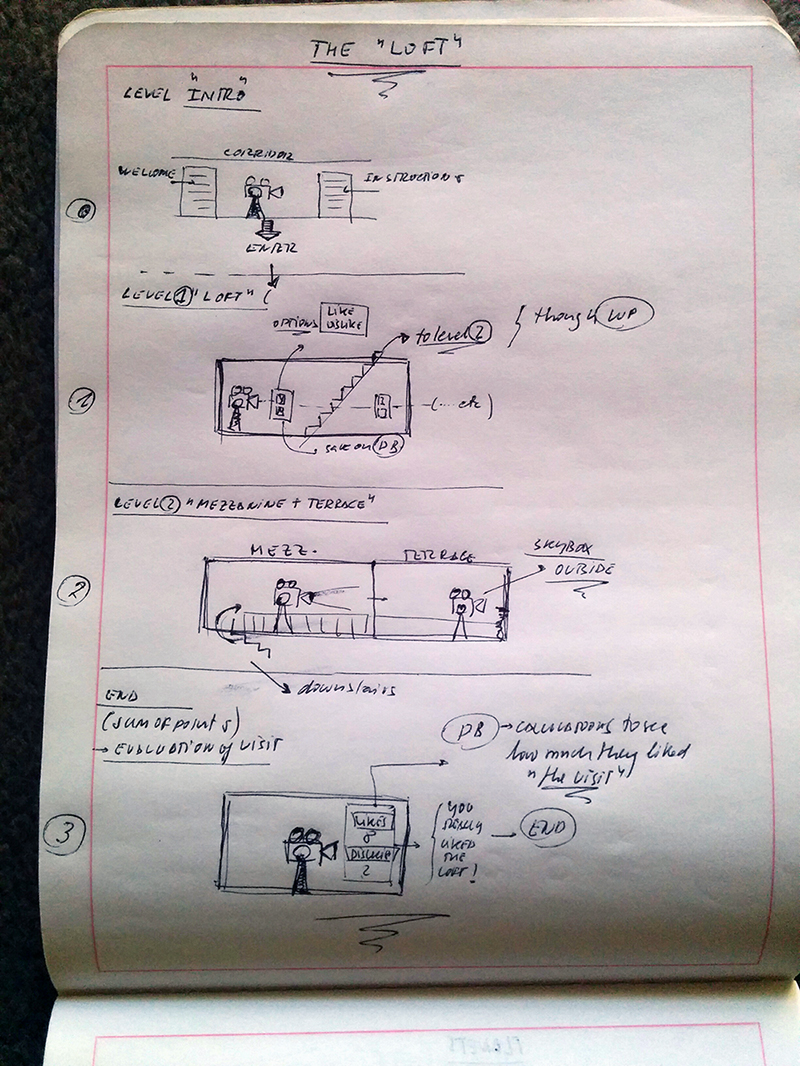 THE "LOFT"
LEVEL "INTRO"
CORRIDOR
WELCOME
INSTRUCTIONS
0
ENTER
LEVEL 1 "LOFT"
OPTIONS
LIKE
DISLIKE
to level 2
though WP
1
(... etc)
save on DB
LEVEL 2 "MEZZANINE + TERRACE"
MEZZ.
TERRACE
SKYBOX
OUTSIDE
2
downstairs
END
(SUM OF POINTS)
→ EVALUATION of VISIT
DB → CALCULATIONS TO SEE
how much they liked
"the visit"
3
LIKES
8
DISLIKE
2
YOU
REALLY
LIKED
THE
LOFT!
END